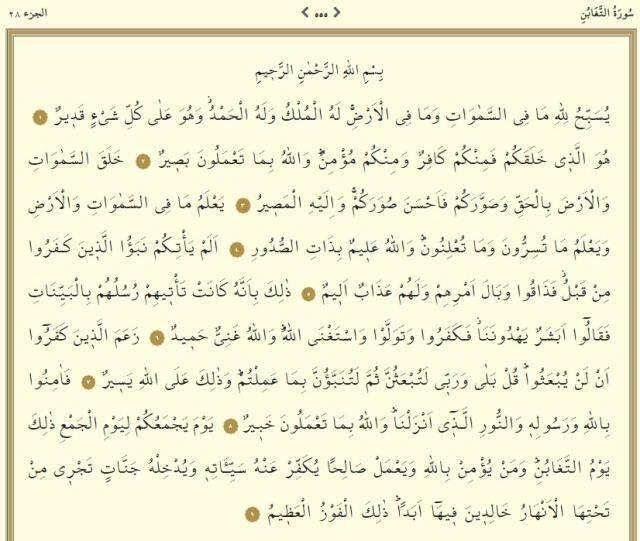 سُورَةُ التَّغَابُنِ ٥٥٥ الجزء ٢٨
بِسْمِ اللهِ الرَّحْمٰنِ الرَّح۪يمِ
يُسَبِّحُ لِلهِ مَا فِى السَّمٰوَاتِ وَمَا فِى الْاَرْضِۚ لَهُ الْمُلْكُ وَلَهُ الْحَمْدُۘ وَهُوَ عَلٰى كُلِّ شَىْءٍ قَد۪يرٌ ١
هُوَ الَّذ۪ى خَلَقَكُمْ فَمِنْكُمْ كَافِرٌ وَمِنْكُمْ مُؤْمِنٌۜ وَاللهُ بِمَا تَعْمَلُونَ بَص۪يرٌ ٢ خَلَقَ السَّمٰوَاتِ
وَالْاَرْضَ بِالْحَقِّ وَصَوَّرَكُمْ فَاَحْسَنَ صُوَرَكُمْۚ وَاِلَيْهِ الْمَص۪يرُ ٣ يَعْلَمُ مَا فِى السَّمٰوَاتِ وَالْاَرْضِ
وَيَعْلَمُ مَا تُسِرُّونَ وَمَا تُعْلِنُونَۜ وَاللهُ عَل۪يمٌ بِذَاتِ الصُّدُورِ ٤ اَلَمْ يَأْتِكُمْ نَبَؤُا الَّذ۪ينَ كَفَرُوا
مِنْ قَبْلُۘ فَذَاقُوا وَبَالَ اَمْرِهِمْ وَلَهُمْ عَذَابٌ اَل۪يمٌ ٥ ذٰلِكَ بِاَنَّهُ كَانَتْ تَأْت۪يهِمْ رُسُلُهُمْ بِالْبَيِّنَاتِ
فَقَالُٓوا اَبَشَرٌ يَهْدُونَنَاۘ فَكَفَرُوا وَتَوَلَّوْا وَاسْتَغْنَى اللهُۜ وَاللهُ غَنِىٌّ حَم۪يدٌ ٦ زَعَمَ الَّذ۪ينَ كَفَرُٓوا
اَنْ لَنْ يُبْعَثُواۜ قُلْ بَلٰى وَرَبّ۪ى لَتُبْعَثُنَّ ثُمَّ لَتُنَبَّؤُنَّ بِمَا عَمِلْتُمْۜ وَذٰلِكَ عَلَى اللهِ يَس۪يرٌ ٧ فَاٰمِنُوا
بِاللهِ وَرَسُولِه۪ وَالنُّورِ الَّذ۪ٓى اَنْزَلْنَاۜ وَاللهُ بِمَا تَعْمَلُونَ خَب۪يرٌ ٨ يَوْمَ يَجْمَعُكُمْ لِيَوْمِ الْجَمْعِ ذٰلِكَ
يَوْمُ التَّغَابُنِۜ وَمَنْ يُؤْمِنْ بِاللهِ وَيَعْمَلْ صَالِحًا يُكَفِّرْ عَنْهُ سَيِّـَٔاتِه۪ وَيُدْخِلْهُ جَنَّاتٍ تَجْر۪ى مِنْ
تَحْتِهَا الْاَنْهَارُ خَالِد۪ينَ ف۪يهَٓا اَبَدًاۜ ذٰلِكَ الْفَوْزُ الْعَظ۪يمُ ٩